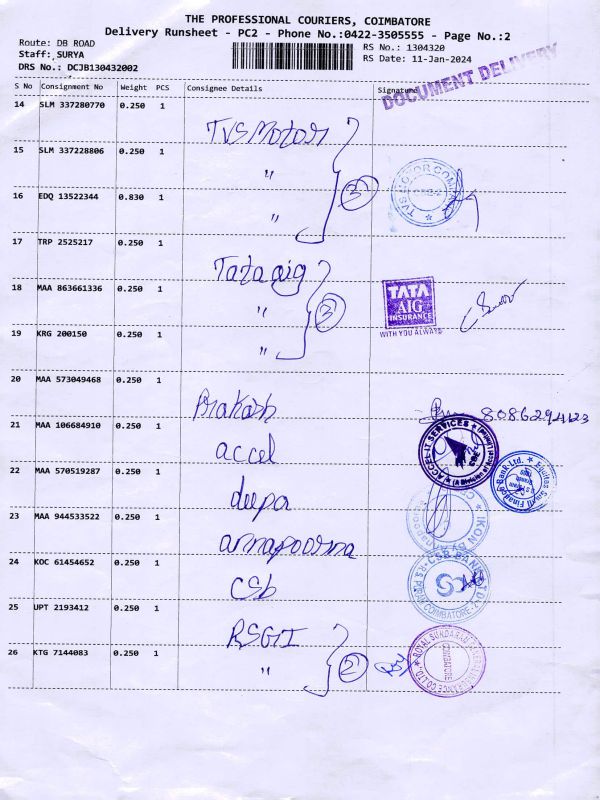 THE PROFESSIONAL COURIERS, COIMBATORE
Delivery Runsheet - PC2 - Phone No.:0422-3505555 - Page No.:2
Route: DB ROAD
Staff: SURYA
DRS No.: DCJB130432002
RS No.: 1304320
RS Date: 11-Jan-2024
DOCUMENT DELIVERY
S No Consignment No Weight PCS Consignee Details Signature
14 SLM 337280770 0.250 1 TVS Motor
15 SLM 337228806 0.250 1 "
16 EDQ 13522344 0.830 1 " 3
TVS MOTOR COMPANY
17 TRP 2525217 0.250 1 Tata aig
18 MAA 863661336 0.250 1 "
19 KRG 200150 0.250 1 " 3
TATA
AIG
INSURANCE
WITH YOU ALWAYS
20 MAA 573049468 0.250 1 Prakash
21 MAA 106684910 0.250 1 accel
ACCEL IT SERVICES
(A Division of Accel
22 MAA 570519287 0.250 1 deepa
Small Finance Bank Ltd.
23 MAA 944533522 0.250 1 annapoorna
24 KOC 61454652 0.250 1 CSb
CSB BANK
CS
R.S. PURAM COIMBATORE
25 UPT 2193412 0.250 1 RSGI
26 KTG 7144083 0.250 1 " 2
ROYAL SUNDARAM GENERAL INSURANCE CO LTD.
COIMBATORE